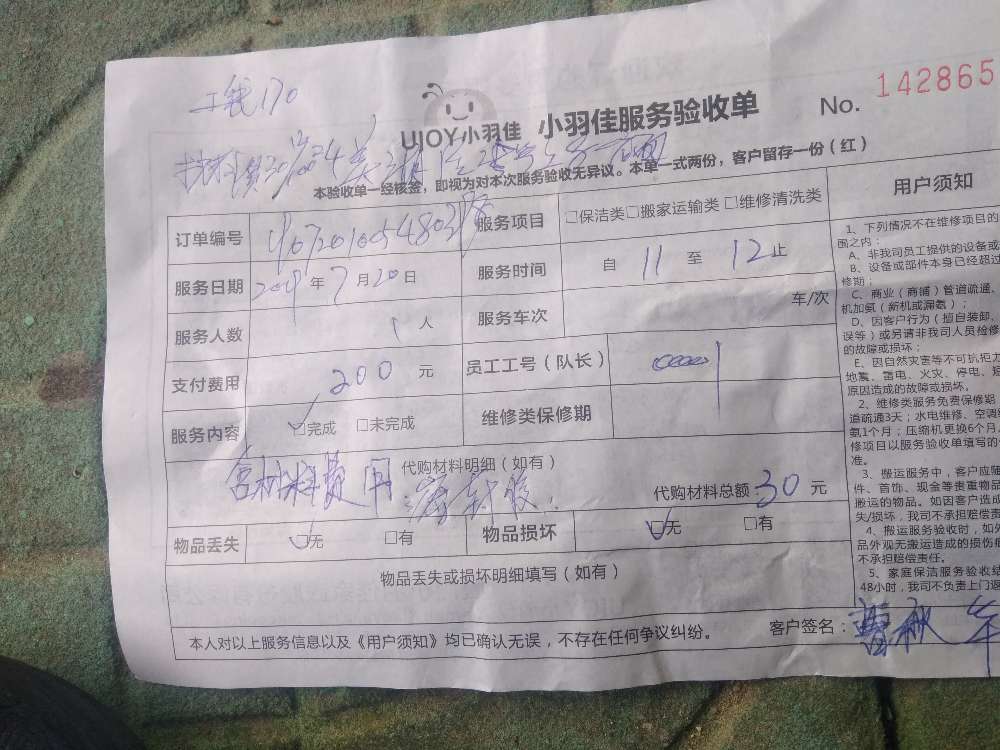 工钱170
UJOY小羽佳 小羽佳服务验收单 No. 142865
本验收单一经核签，即视为对本次服务验收无异议。本单一式两份，客户留存一份（红）
订单编号 服务项目 □保洁类□搬家运输类□维修清洗类
服务日期 2019年7月20日 服务时间 自 11 至 12止
服务人数 1人 服务车次 车/次
支付费用 200 元 员工工号（队长）
服务内容 □完成 □未完成 维修类保修期
代购材料明细（如有）
含材料费用 代购材料总额:30元
物品丢失 □无 □有 物品损坏 □无 □有
物品丢失或损坏明细填写（如有）
本人对以上服务信息以及《用户须知》均已确认无误，不存在任何争议纠纷。 客户签名：
用户须知
1、下列情况不在维修项目的
围之内：
A、非我司员工提供的设备或
B、设备或部件本身已经超过
修期；
C、商业（商铺）管道疏通、
机加氨（新机或漏氨）；
D、因客户行为（擅自装卸、
误等）或另请非我司人员检修
的故障或损坏；
E、因自然灾害等不可抗拒力
地震、雷电、火灾、停电、
原因造成的故障或损坏。
2、维修类服务免费保修期
道疏通3天；水电维修、空调
氨1个月；压缩机更换6个月
修项目以服务验收单填写的
准。
3、搬运服务中，客户应
件、首饰、现金等贵重物品
搬运的物品。如因客户造成
失/损坏，我司不承担赔偿责
4、搬运服务验收时，如
品外观无搬运造成的损伤
不承担赔偿责任。
5、家庭保洁服务验收结
48小时，我司不负责上门返